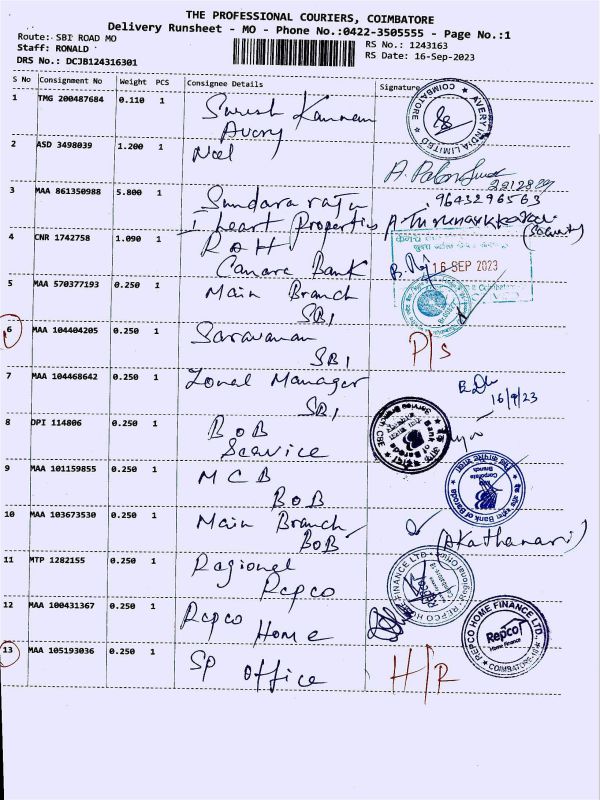 THE PROFESSIONAL COURIERS, COIMBATORE
Delivery Runsheet - MO - Phone No.:0422-3505555 - Page No.:1
Route: SBI ROAD MO
Staff: RONALD
DRS No.: DCJB124316301
RS No.: 1243163
RS Date: 16-Sep-2023
S No Consignment No Weight PCS Consignee Details Signature
1 TMG 200487684 0.110 1 Suresh Kannan
Avery
COIMBATORE AVERY INDIA LIMITED
2 ASD 3498039 1.200 1 Noel
3 MAA 861350988 5.800 1 Sundara raju
9643296563
I heart Properties
(Security)
4 CNR 1742758 1.090 1 R O H
Canara Bank
16 SEP 2023
5 MAA 570377193 0.250 1 Main Branch
SBI
6 MAA 104404205 0.250 1 Saravanan
SBI
P/S
7 MAA 104468642 0.250 1 Zonal Manager
SBI
16/9/23
8 DPI 114806 0.250 1 BOB
Service
Bank of Baroda
Service Branch CBE
9 MAA 101159855 0.250 1 MCB
BOB
Bank of Baroda
Corporate Branch
10 MAA 103673530 0.250 1 Main Branch
BOB
11 MTP 1282155 0.250 1 Ragional
Repco
REPCO HOME FINANCE LTD
12 MAA 100431367 0.250 1 Repco
Home
REPCO HOME FINANCE LTD.
Repco
Home Finance
COIMBATORE
13 MAA 105193036 0.250 1 SP
office
H/R